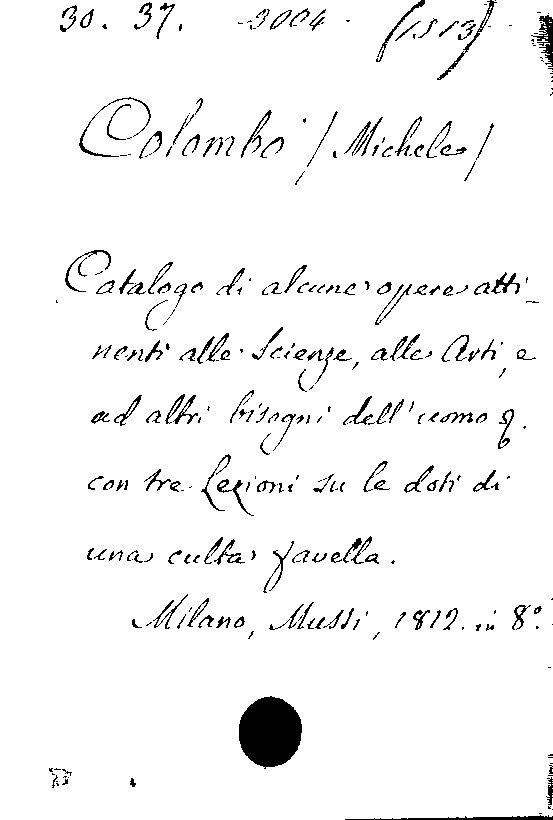 30. 37. 2004 (1813)
Colombo (Michele)
Catalogo di alcune opere atti-
nenti alle Scienze, alle Arti, e
ad altri bisogni dell'uomo
con tre Lezioni su le doti di
una culta favella.
Milano, Mussi, 1812. in 8º.